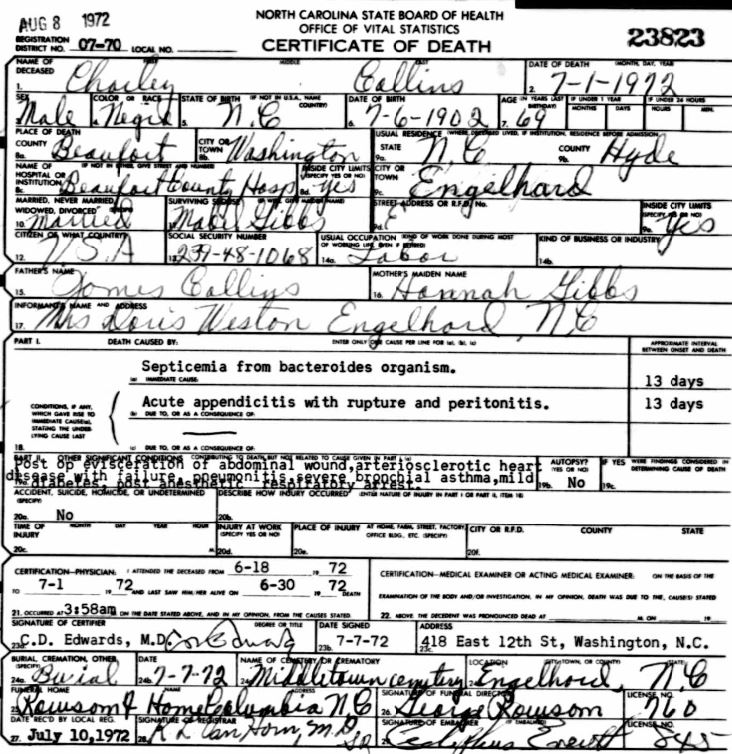 AUG 8 1972
NORTH CAROLINA STATE BOARD OF HEALTH
OFFICE OF VITAL STATISTICS
CERTIFICATE OF DEATH
23823
REGISTRATION DISTRICT NO. 07-70 LOCAL NO.
NAME OF DECEASED FIRST MIDDLE LAST DATE OF DEATH (MONTH, DAY, YEAR)
1. Charley Collins 2. 7-1-1972
SEX COLOR OR RACE STATE OF BIRTH (IF NOT IN U.S.A., NAME COUNTRY) DATE OF BIRTH AGE (IN YEARS LAST BIRTHDAY) IF UNDER 1 YEAR MONTHS DAYS IF UNDER 24 HOURS HOURS MIN.
3. Male 4. Negro 5. N.C 6. 7-6-1902 7. 69
PLACE OF DEATH COUNTY CITY OR TOWN USUAL RESIDENCE (WHERE DECEASED LIVED, IF INSTITUTION, RESIDENCE BEFORE ADMISSION) STATE COUNTY
8a. Beaufort 8b. Washington 9a. N.C 9b. Hyde
NAME OF HOSPITAL OR INSTITUTION (IF NOT IN EITHER, GIVE STREET AND NUMBER) INSIDE CITY LIMITS (SPECIFY YES OR NO) CITY OR TOWN
8c. Beaufort County Hosp 8d. yes 9c. Engelhard
MARRIED, NEVER MARRIED, WIDOWED, DIVORCED (SPECIFY) SURVIVING SPOUSE (IF WIFE, GIVE MAIDEN NAME) STREET ADDRESS OR R.F.D. No. INSIDE CITY LIMITS (SPECIFY YES OR NO)
10. Married 11. Mabel Gibbs 9d. 9e. Yes
CITIZEN OF WHAT COUNTRY SOCIAL SECURITY NUMBER USUAL OCCUPATION (KIND OF WORK DONE DURING MOST OF WORKING LIFE, EVEN IF RETIRED) KIND OF BUSINESS OR INDUSTRY
12. USA 13. 239-48-1068 14a. Labor 14b.
FATHER'S NAME MOTHER'S MAIDEN NAME
15. James Collins 16. Hannah Gibbs
INFORMANT'S NAME AND ADDRESS
17. Mrs Doris Weston Engelhard, N.C
PART I. DEATH CAUSED BY: ENTER ONLY ONE CAUSE PER LINE FOR (a), (b), (c) APPROXIMATE INTERVAL BETWEEN ONSET AND DEATH
Septicemia from bacteroides organism. 13 days
(a) IMMEDIATE CAUSE
Acute appendicitis with rupture and peritonitis. 13 days
CONDITIONS, IF ANY, WHICH GAVE RISE TO IMMEDIATE CAUSE(a), STATING THE UNDERLYING CAUSE LAST
(b) DUE TO, OR AS A CONSEQUENCE OF:
18. (c) DUE TO, OR AS A CONSEQUENCE OF:
PART II. OTHER SIGNIFICANT CONDITIONS CONTRIBUTING TO DEATH BUT NOT RELATED TO CAUSE GIVEN IN PART I (a) AUTOPSY? (YES OR NO) IF YES WERE FINDINGS CONSIDERED IN DETERMINING CAUSE OF DEATH
Post op evisceration of abdominal wound,arteriosclerotic heart
disease with failure, pneumonitis,severe bronchial asthma,mild
19a. diabetes, post anesthetic respiratory arrest. 19b. No 19c.
ACCIDENT, SUICIDE, HOMICIDE, OR UNDETERMINED (SPECIFY) DESCRIBE HOW INJURY OCCURRED (ENTER NATURE OF INJURY IN PART I OR PART II, ITEM 18)
20a. No 20b.
TIME OF INJURY MONTH DAY YEAR HOUR INJURY AT WORK (SPECIFY YES OR NO) PLACE OF INJURY AT HOME, FARM, STREET, FACTORY, OFFICE BLDG., ETC. (SPECIFY) CITY OR R.F.D. COUNTY STATE
20c. M 20d. 20e. 20f.
CERTIFICATION-PHYSICIAN: I ATTENDED THE DECEASED FROM 6-18 19 72
TO 7-1 19 72 AND LAST SAW HIM/HER ALIVE ON 6-30 19 72 DEATH
21. OCCURRED AT 3:58am ON THE DATE STATED ABOVE, AND IN MY OPINION, FROM THE CAUSES STATED
CERTIFICATION-MEDICAL EXAMINER OR ACTING MEDICAL EXAMINER: ON THE BASIS OF THE
EXAMINATION OF THE BODY AND/OR INVESTIGATION, IN MY OPINION, DEATH WAS DUE TO THE, CAUSE(S) STATED
22. ABOVE THE DECEDENT WAS PRONOUNCED DEAD AT M. ON 19
SIGNATURE OF CERTIFIER DEGREE OR TITLE DATE SIGNED ADDRESS
23a. C.D. Edwards, M.D. 23b. 7-7-72 23c. 418 East 12th St, Washington, N.C.
BURIAL, CREMATION, OTHER (SPECIFY) DATE NAME OF CEMETERY OR CREMATORY LOCATION (CITY, TOWN, OR COUNTY) (STATE)
24a. Burial 24b. 7-7-72 24c. Middletown cemetery Engelhard, N.C
FUNERAL HOME NAME ADDRESS SIGNATURE OF FUNERAL DIRECTOR LICENSE NO.
25. Rowson F Home Columbia N.C 26. George Rowson 760
DATE REC'D BY LOCAL REG. SIGNATURE OF REGISTRAR SIGNATURE OF EMBALMER (IF EMBALMED) LICENSE NO.
27. July 10,1972 28. Van Horn, M.D 29. Everett 845